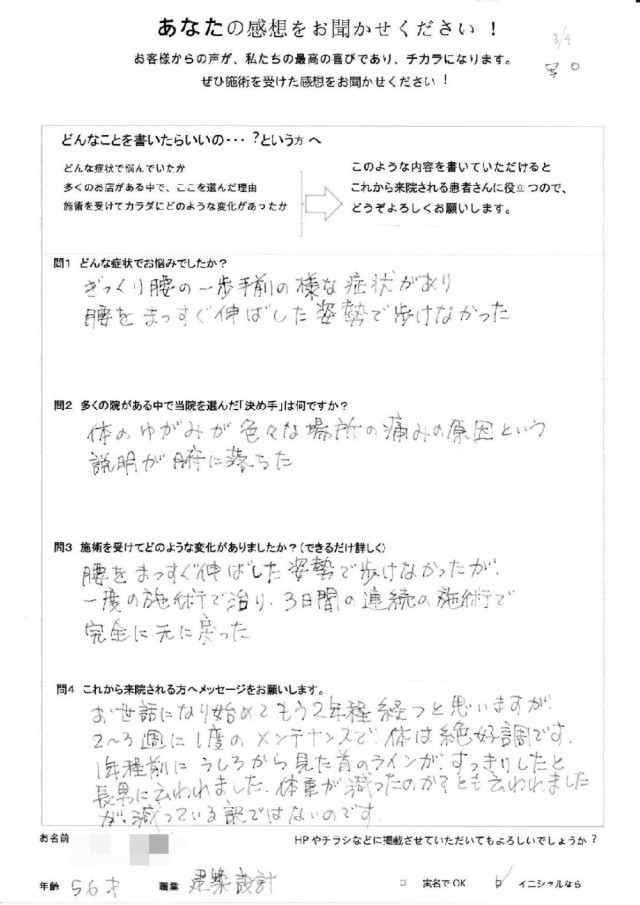 あなたの感想をお聞かせください！
3/4
お客様からの声が、私たちの最高の喜びであり、チカラになります。
ぜひ施術を受けた感想をお聞かせください！
どんなことを書いたらいいの・・・？という方へ
どんな症状で悩んでいたか
多くのお店がある中で、ここを選んだ理由
施術を受けてカラダにどのような変化があったか
このような内容を書いていただけると
これから来院される患者さんに役立つので、
どうぞよろしくお願いします。
問1 どんな症状でお悩みでしたか？
ぎっくり腰の一歩手前の様な症状があり
腰をまっすぐ伸ばした姿勢で歩けなかった
問2 多くの院がある中で当院を選んだ「決め手」は何ですか？
体のゆがみが色々な場所の痛みの原因という
説明が腑に落ちた
問3 施術を受けてどのような変化がありましたか？（できるだけ詳しく）
腰をまっすぐ伸ばした姿勢で歩けなかったが、
一度の施術で治り、3日間の連続の施術で
完全に元に戻った
問4 これから来院される方へメッセージをお願いします。
お世話になり始めてもう2年程経つと思いますが、
2～3週に1度のメンテナンスで、体は絶好調です。
1年程前にうしろから見た首のラインが、すっきりしたと
長男に云われました。体重が減ったのか？とも云われました
が、減っている訳ではないのです。
お名前
HPやチラシなどに掲載させていただいてもよろしいでしょうか？
年齢 56才 職業 建築設計 □ 実名でOK ☑ イニシャルなら